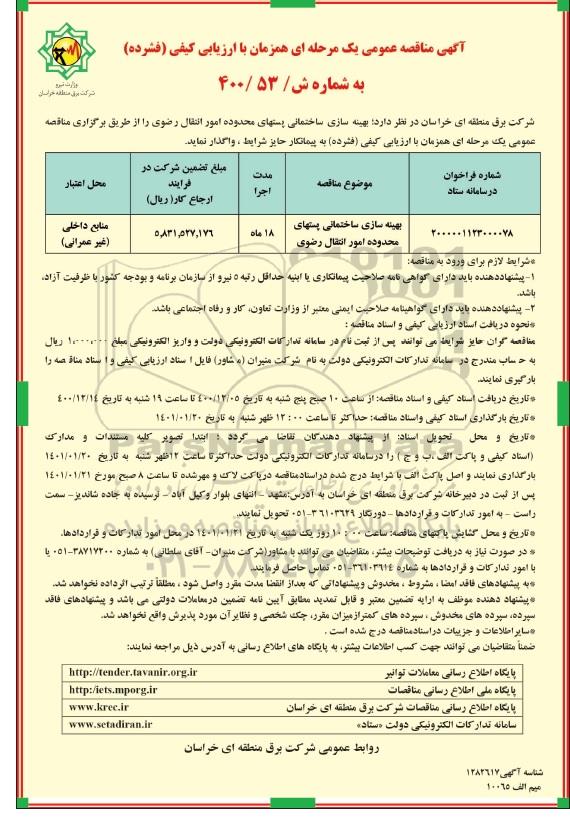 آگهی مناقصه عمومی یک مرحله ای همزمان با ارزیابی کیفی (فشرده)
به شماره ش/ ۵۳ /۴۰۰
وزارت نیرو
شرکت برق منطقه ای خراسان
شرکت برق منطقه ای خراسان در نظر دارد؛ بهینه سازی ساختمانی پستهای محدوده امور انتقال رضوی را از طریق برگزاری مناقصه
عمومی یک مرحله ای همزمان با ارزیابی کیفی (فشرده) به پیمانکار حایز شرایط ، واگذار نماید.
شماره فراخوان درسامانه ستاد
موضوع مناقصه
مدت اجرا
مبلغ تضمین شرکت در فرایند ارجاع کار( ریال)
محل اعتبار
۲۰۰۰۰۰۱۱۲۳۰۰۰۰۷۸
بهینه سازی ساختمانی پستهای محدوده امور انتقال رضوی
۱۸ ماه
۵,۸۳۱,۵۲۷,۱۷۶
منابع داخلی (غیر عمرانی)
*شرایط لازم برای ورود به مناقصه:
۱-پیشنهاددهنده باید دارای گواهی نامه صلاحیت پیمانکاری یا ابنیه حداقل رتبه ۵ نیرو از سازمان برنامه و بودجه کشور با ظرفیت آزاد،
باشد.
۲- پیشنهاددهنده باید دارای گواهینامه صلاحیت ایمنی معتبر از وزارت تعاون، کار و رفاه اجتماعی باشد.
*نحوه دریافت اسناد ارزیابی کیفی و اسناد مناقصه :
مناقصه گران حایز شرایط می توانند پس از ثبت نام در سامانه تدارکات الکترونیکی دولت و واریز الکترونیکی مبلغ ۱,۰۰۰,۰۰۰ ریال
به حساب مندرج در سامانه تدارکات الکترونیکی دولت به نام شرکت منیران (مشاور) فایل اسناد ارزیابی کیفی و اسناد مناقصه را
بارگیری نمایند.
*تاریخ دریافت اسناد کیفی و اسناد مناقصه: از ساعت ۱۰ صبح پنج شنبه به تاریخ ۴۰۰/۱۲/۰۵ تا ساعت ۱۹ شنبه به تاریخ ۴۰۰/۱۲/۱۴
*تاریخ بارگذاری اسناد کیفی واسناد مناقصه: حداکثر تا ساعت ۱۲:۰۰ ظهر شنبه به تاریخ ۱۴۰۱/۰۱/۲۰
*تاریخ و محل تحویل اسناد: از پیشنهاد دهندگان تقاضا می گردد : ابتدا تصویر کلیه مستندات و مدارک
(اسناد کیفی و پاکت الف ،ب و ج ) را درسامانه تدارکات الکترونیکی دولت حداکثرتا ساعت ۱۲ظهر شنبه به تاریخ ۱۴۰۱/۰۱/۲۰
بارگذاری نمایند و اصل پاکت الف با شرایط درج شده دراسنادمناقصه درپاکت لاک و مهرشده تا ساعت ۸ صبح مورخ ۱۴۰۱/۰۱/۲۱
پس از ثبت در دبیرخانه شرکت برق منطقه ای خراسان به آدرس:مشهد - انتهای بلوار وکیل آباد - نرسیده به جاده شاندیز- سمت
راست - به امور تدارکات و قراردادها -دورنگار ۳۶۱۰۳۶۲۹-۰۵۱ تحویل نمایند.
*تاریخ و محل گشایش پاکتهای مناقصه: ساعت ۱۰:۰۰ روز یک شنبه به تاریخ ۱۴۰۱/۰۱/۲۱ در محل امور تدارکات و قراردادها.
* در صورت نیاز به دریافت توضیحات بیشتر، متقاضیان می توانند با مشاور(شرکت منیران- آقای سلطانی) به شماره ۳۸۷۱۷۲۰۰-۰۵۱ یا
با امور تدارکات و قراردادها به شماره ۳۶۱۰۳۶۱۴-۰۵۱ تماس حاصل فرمایند.
*به پیشنهادهای فاقد امضا ، مشروط ، مخدوش وپیشنهاداتی که بعداز انقضا مدت مقرر واصل شود ، مطلقاً ترتیب اثرداده نخواهد شد.
*پیشنهاد دهنده موظف به ارایه تضمین معتبر و قابل تمدید مطابق آیین نامه تضمین درمعاملات دولتی می باشد و پیشنهادهای فاقد
سپرده، سپرده های مخدوش ، سپرده های کمترازمیزان مقرر، چک شخصی و نظایرآن مورد پذیرش واقع نخواهد شد.
*سایراطلاعات و جزییات دراسنادمناقصه درج شده است .
ضمناً متقاضیان می توانند جهت کسب اطلاعات بیشتر، به پایگاه های اطلاع رسانی به آدرس ذیل مراجعه نمایند:
پایگاه اطلاع رسانی معاملات توانیر http://tender.tavanir.org.ir
پایگاه ملی اطلاع رسانی مناقصات http:/iets.mporg.ir
پایگاه اطلاع رسانی مناقصات شرکت برق منطقه ای خراسان www.krec.ir
سامانه تدارکات الکترونیکی دولت «ستاد» www.setadiran.ir
روابط عمومی شرکت برق منطقه ای خراسان
شناسه آگهی۱۲۸۲۶۱۷
میم الف ۱۰۰۶۵